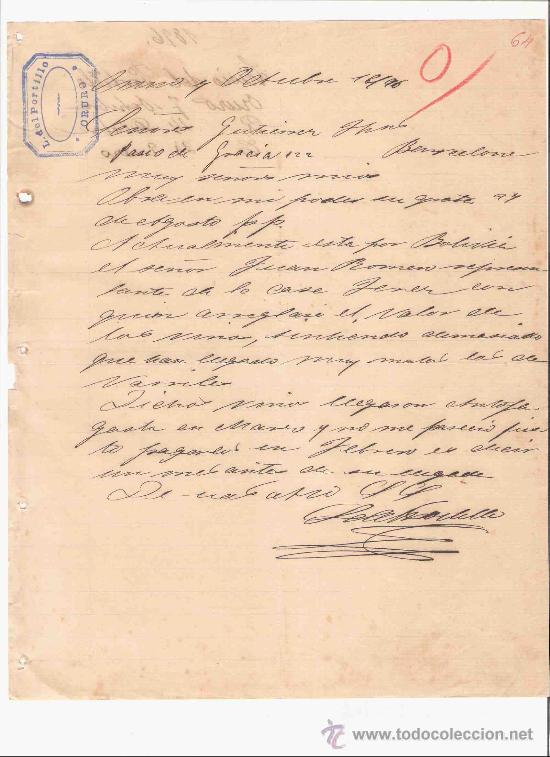 64
L. del Portillo
ORURO
Oruro y Octubre 16/96
Señores Gutierrez Hnos
Paseo de Gracia Barcelona
Muy señores mios
Obra en mi poder su grata 24
de Agosto ppº
Actualmente esta por Bolivia
el señor Juan Romero represen
tante de la casa Jener con
quien arreglaré el valor de
los vinos, sintiendo demasiado
que han llegado muy malos los de
Varriles
Dichos vinos llegaron Antofa
gasta en Marzo y no me parecio jus
to pagarlos en Febrero es decir
un mes antes de su llegada
De Uds atto SS
L del Portillo
todocoleccion.net